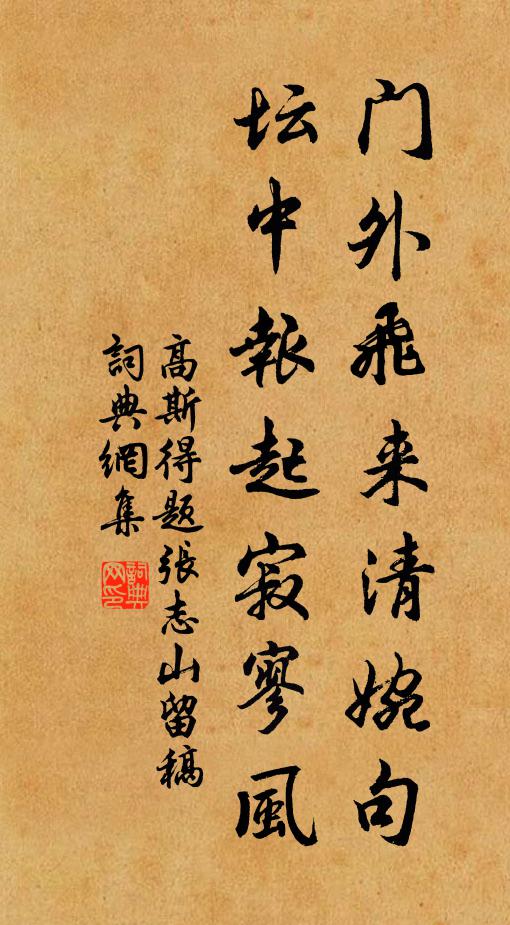 门外飛来清婉句
坛中報起寂寥風
高斯得题張志山留稿
詞典網集